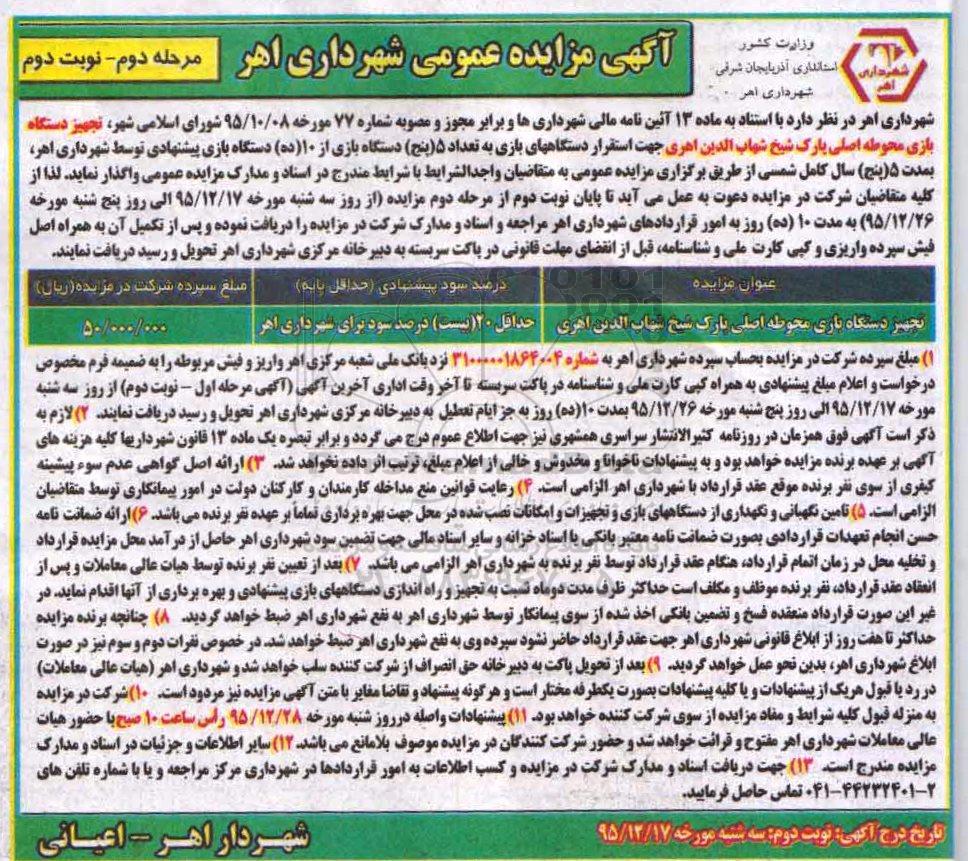 وزارت کشور
استانداری آذربایجان شرقی
شهرداری اهر
شهرداری
اهر
آگهی مزایده عمومی شهرداری اهر
مرحله دوم- نوبت دوم
شهرداری اهر در نظر دارد با استناد به ماده ۱۳ آئین نامه مالی شهرداری ها و برابر مجوز و مصوبه شماره ۷۷ مورخه ۹۵/۱۰/۰۸ شورای اسلامی شهر، تجهیز دستگاه
بازی محوطه اصلی پارک شیخ شهاب الدین اهری جهت استقرار دستگاههای بازی به تعداد ۵(پنج) دستگاه بازی از ۱۰(ده) دستگاه بازی پیشنهادی توسط شهرداری اهر،
بمدت ۵(پنج) سال کامل شمسی از طریق برگزاری مزایده عمومی به متقاضیان واجدالشرایط با شرایط مندرج در اسناد و مدارک مزایده عمومی واگذار نماید. لذا از
کلیه متقاضیان شرکت در مزایده دعوت به عمل می آید تا پایان نوبت دوم از مرحله دوم مزایده (از روز سه شنبه مورخه ۹۵/۱۲/۱۷ الی روز پنج شنبه مورخه
۹۵/۱۲/۲۶) به مدت ۱۰ (ده) روز به امور قراردادهای شهرداری اهر مراجعه و اسناد و مدارک شرکت در مزایده را دریافت نموده و پس از تکمیل آن به همراه اصل
فیش سپرده واریزی و کپی کارت ملی و شناسنامه، قبل از انقضای مهلت قانونی در پاکت سربسته به دبیرخانه مرکزی شهرداری اهر تحویل و رسید دریافت نمایند.
عنوان مزایده درصد سود پیشنهادی (حداقل پایه) مبلغ سپرده شرکت در مزایده(ریال)
تجهیز دستگاه بازی محوطه اصلی پارک شیخ شهاب الدین اهری حداقل ۲۰(بیست) درصد سود برای شهرداری اهر ۵۰/۰۰۰/۰۰۰
۱) مبلغ سپرده شرکت در مزایده بحساب سپرده شهرداری اهر به شماره ۳۱۰۰۰۰۱۸۶۴۰۰۴ نزد بانک ملی شعبه مرکزی اهر واریز و فیش مربوطه را به ضمیمه فرم مخصوص
درخواست و اعلام مبلغ پیشنهادی به همراه کپی کارت ملی و شناسنامه در پاکت سربسته تا آخر وقت اداری آخرین آگهی (آگهی مرحله اول – نوبت دوم) از روز سه شنبه
مورخه ۹۵/۱۲/۱۷ الی روز پنج شنبه مورخه ۹۵/۱۲/۲۶ بمدت ۱۰(ده) روز به جز ایام تعطیل به دبیرخانه مرکزی شهرداری اهر تحویل و رسید دریافت نمایند. ۲) لازم به
ذکر است آگهی فوق همزمان در روزنامه کثیرالانتشار سراسری همشهری نیز جهت اطلاع عموم درج می گردد و برابر تبصره یک ماده ۱۳ قانون شهرداریها کلیه هزینه های
آگهی بر عهده برنده مزایده خواهد بود و به پیشنهادات ناخوانا و مخدوش و خالی از اعلام مبلغ، ترتیب اثر داده نخواهد شد. ۳) ارائه اصل گواهی عدم سوء پیشینه
کیفری از سوی نفر برنده موقع عقد قرارداد با شهرداری اهر الزامی است. ۴) رعایت قوانین منع مداخله کارمندان و کارکنان دولت در امور پیمانکاری توسط متقاضیان
الزامی است. ۵) تامین نگهبانی و نگهداری از دستگاههای بازی و تجهیزات و امکانات نصب شده در محل جهت بهره برداری تماماً بر عهده نفر برنده می باشد. ۶) ارائه ضمانت نامه
حسن انجام تعهدات قراردادی بصورت ضمانت نامه معتبر بانکی یا اسناد خزانه و سایر اسناد مالی جهت تضمین سود شهرداری اهر حاصل از درآمد محل مزایده قرارداد
و تخلیه محل در زمان اتمام قرارداد، هنگام عقد قرارداد توسط نفر برنده به شهرداری اهر الزامی می باشد. ۷) بعد از تعیین نفر برنده توسط هیات عالی معاملات و پس از
انعقاد عقد قرارداد، نفر برنده موظف و مکلف است حداکثر ظرف مدت دوماه نسبت به تجهیز و راه اندازی دستگاههای بازی پیشنهادی و بهره برداری از آنها اقدام نماید. در
غیر این صورت قرارداد منعقده فسخ و تضمین بانکی اخذ شده از سوی پیمانکار توسط شهرداری اهر به نفع شهرداری اهر ضبط خواهد گردید. ۸) چنانچه برنده مزایده
حداکثر تا هفت روز از ابلاغ قانونی شهرداری اهر جهت عقد قرارداد حاضر نشود سپرده وی به نفع شهرداری اهر ضبط خواهد شد. در خصوص نفرات دوم و سوم نیز در صورت
ابلاغ شهرداری اهر، بدین نحو عمل خواهد گردید. ۹) بعد از تحویل پاکت به دبیرخانه حق انصراف از شرکت کننده سلب خواهد شد و شهرداری اهر (هیات عالی معاملات)
در رد یا قبول هریک از پیشنهادات و یا کلیه پیشنهادات بصورت یکطرفه مختار است و هرگونه پیشنهاد و تقاضا مغایر با متن آگهی مزایده نیز مردود است. ۱۰) شرکت در مزایده
به منزله قبول کلیه شرایط و مفاد مزایده از سوی شرکت کننده خواهد بود. ۱۱) پیشنهادات واصله در روز شنبه مورخه ۹۵/۱۲/۲۸ رأس ساعت ۱۰ صبح با حضور هیات
عالی معاملات شهرداری اهر مفتوح و قرائت خواهد شد و حضور شرکت کنندگان در مزایده موصوف بلامانع می باشد. ۱۲) سایر اطلاعات و جزئیات در اسناد و مدارک
مزایده مندرج است. ۱۳) جهت دریافت اسناد و مدارک شرکت در مزایده و کسب اطلاعات به امور قراردادها در شهرداری مرکز مراجعه و یا با شماره تلفن های
۰۴۱-۴۴۲۳۲۴۰۱-۲ تماس حاصل فرمایید.
تاریخ درج آگهی: نوبت دوم: سه شنبه مورخه ۹۵/۱۲/۱۷
شهردار اهر – اعیانی